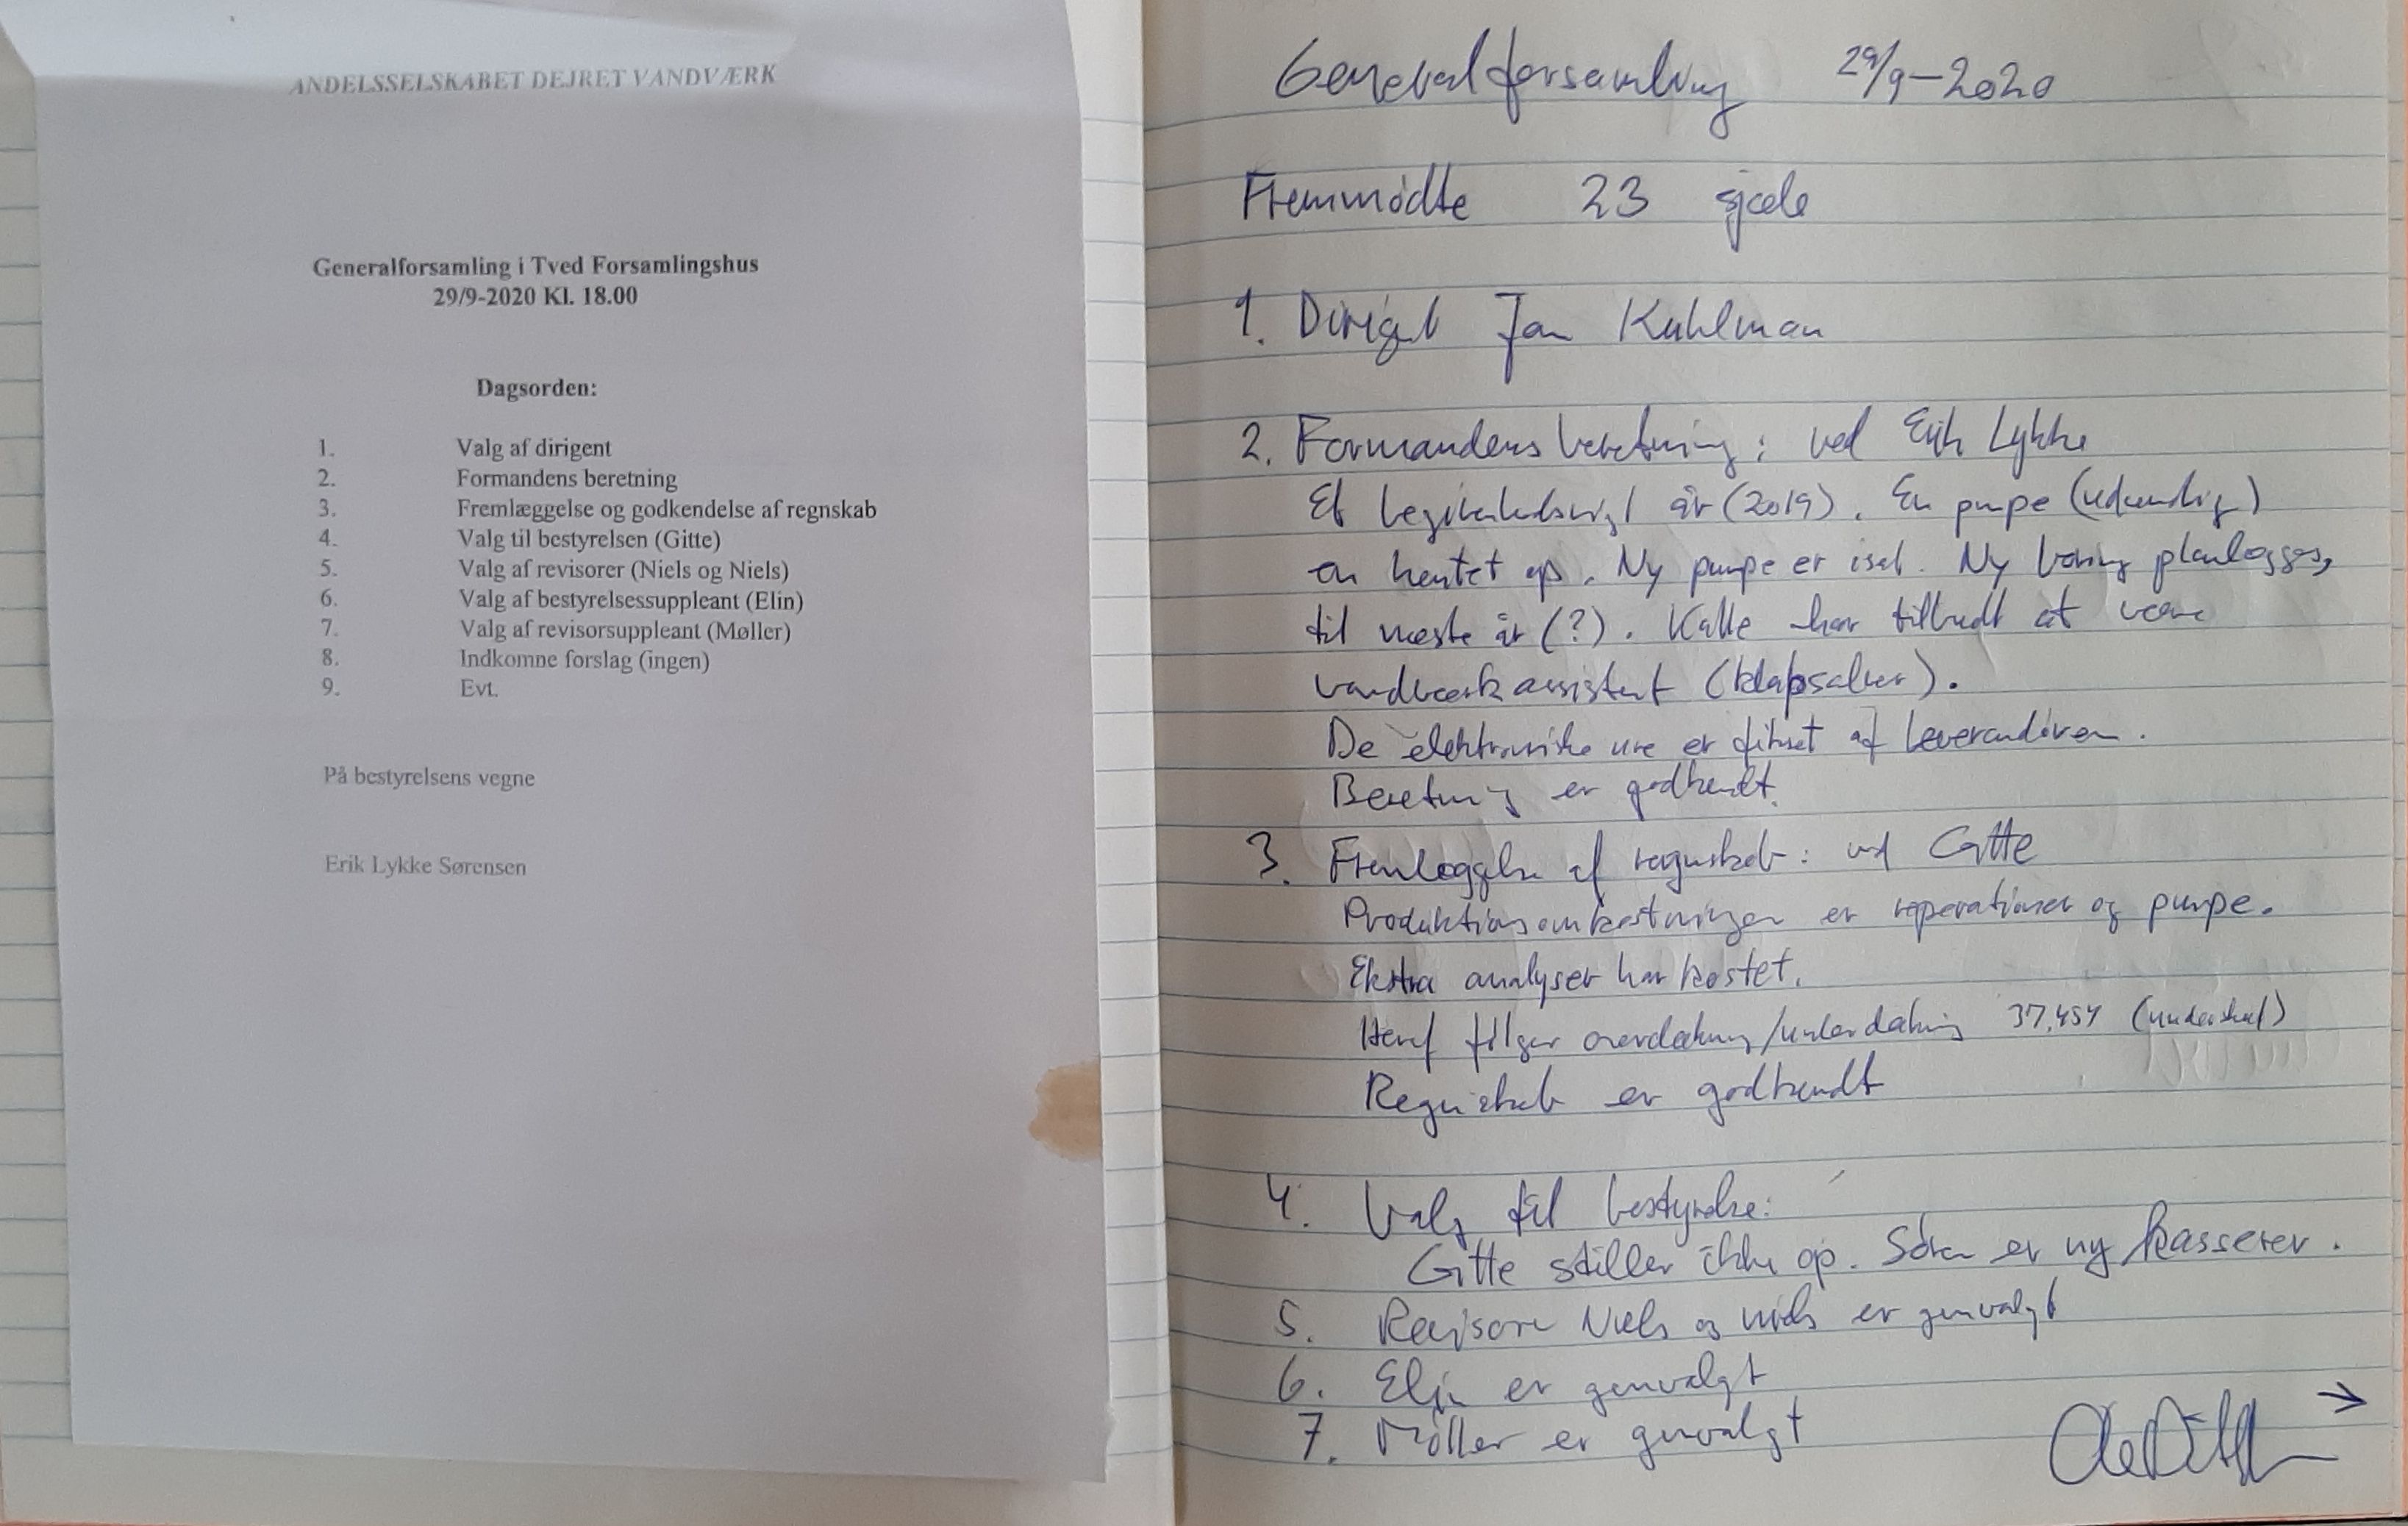 ANDELSSELSKABET DEJRET VANDVÆRK
Generalforsamling i Tved Forsamlingshus
29/9-2020 Kl. 18.00
Dagsorden:
1. Valg af dirigent
2. Formandens beretning
3. Fremlæggelse og godkendelse af regnskab
4. Valg til bestyrelsen (Gitte)
5. Valg af revisorer (Niels og Niels)
6. Valg af bestyrelsessuppleant (Elin)
7. Valg af revisorsuppleant (Møller)
8. Indkomne forslag (ingen)
9. Evt.
På bestyrelsens vegne
Erik Lykke Sørensen
Generalforsamling 29/9-2020
Fremmødte 23 sjæle
1. Dirigent Jan Kuhlman
2. Formandens beretning: ved Erik Lykke
Et begivenhedsrigt år (2019). En pumpe (udvendig)
er hentet op. Ny pumpe er isat. Ny boring planlægges,
til næste år (?). Kalle har tilbudt at være
vandværkassistent (klapsalver).
De elektroniske ure er fikset af leverandøren.
Beretning er godkendt.
3. Fremlæggelse af regnskab: ved Gitte
Produktionsomkostninger er reperationer og pumpe.
Ekstra analyser har kostet.
Heraf følger overdækning/underdækning 37.454 (underskud)
Regnskab er godkendt
4. Valg til bestyrelse:
Gitte stiller ikke op. Søren er ny kasserer.
5. Revisore Niels og Niels er genvalgt
6. Elin er genvalgt
7. Møller er genvalgt →